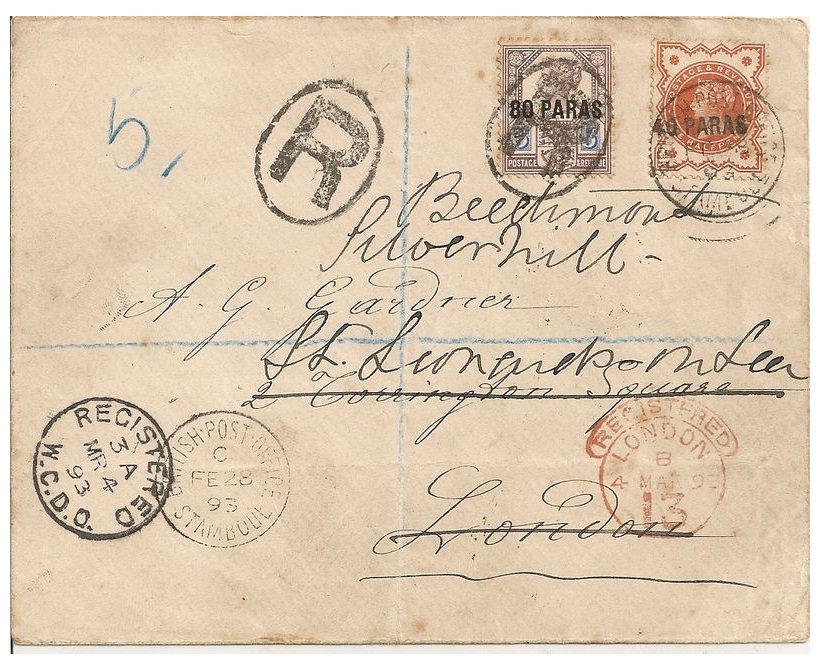 5.
R
80 PARAS
5 5
POSTAGE & REVENUE
40 PARAS
POSTAGE & REVENUE
HALFPENNY
Silverhill -
A. G. Gardner
St. Leonards-on-Sea
2 Torrington Square
London
REGISTERED
3 A
MR 4
93
W.C.D.O.
BRITISH·POST·OFFICE
C
FE 28
93
STAMBOUL
REGISTERED
LONDON
B
4 MAR 93